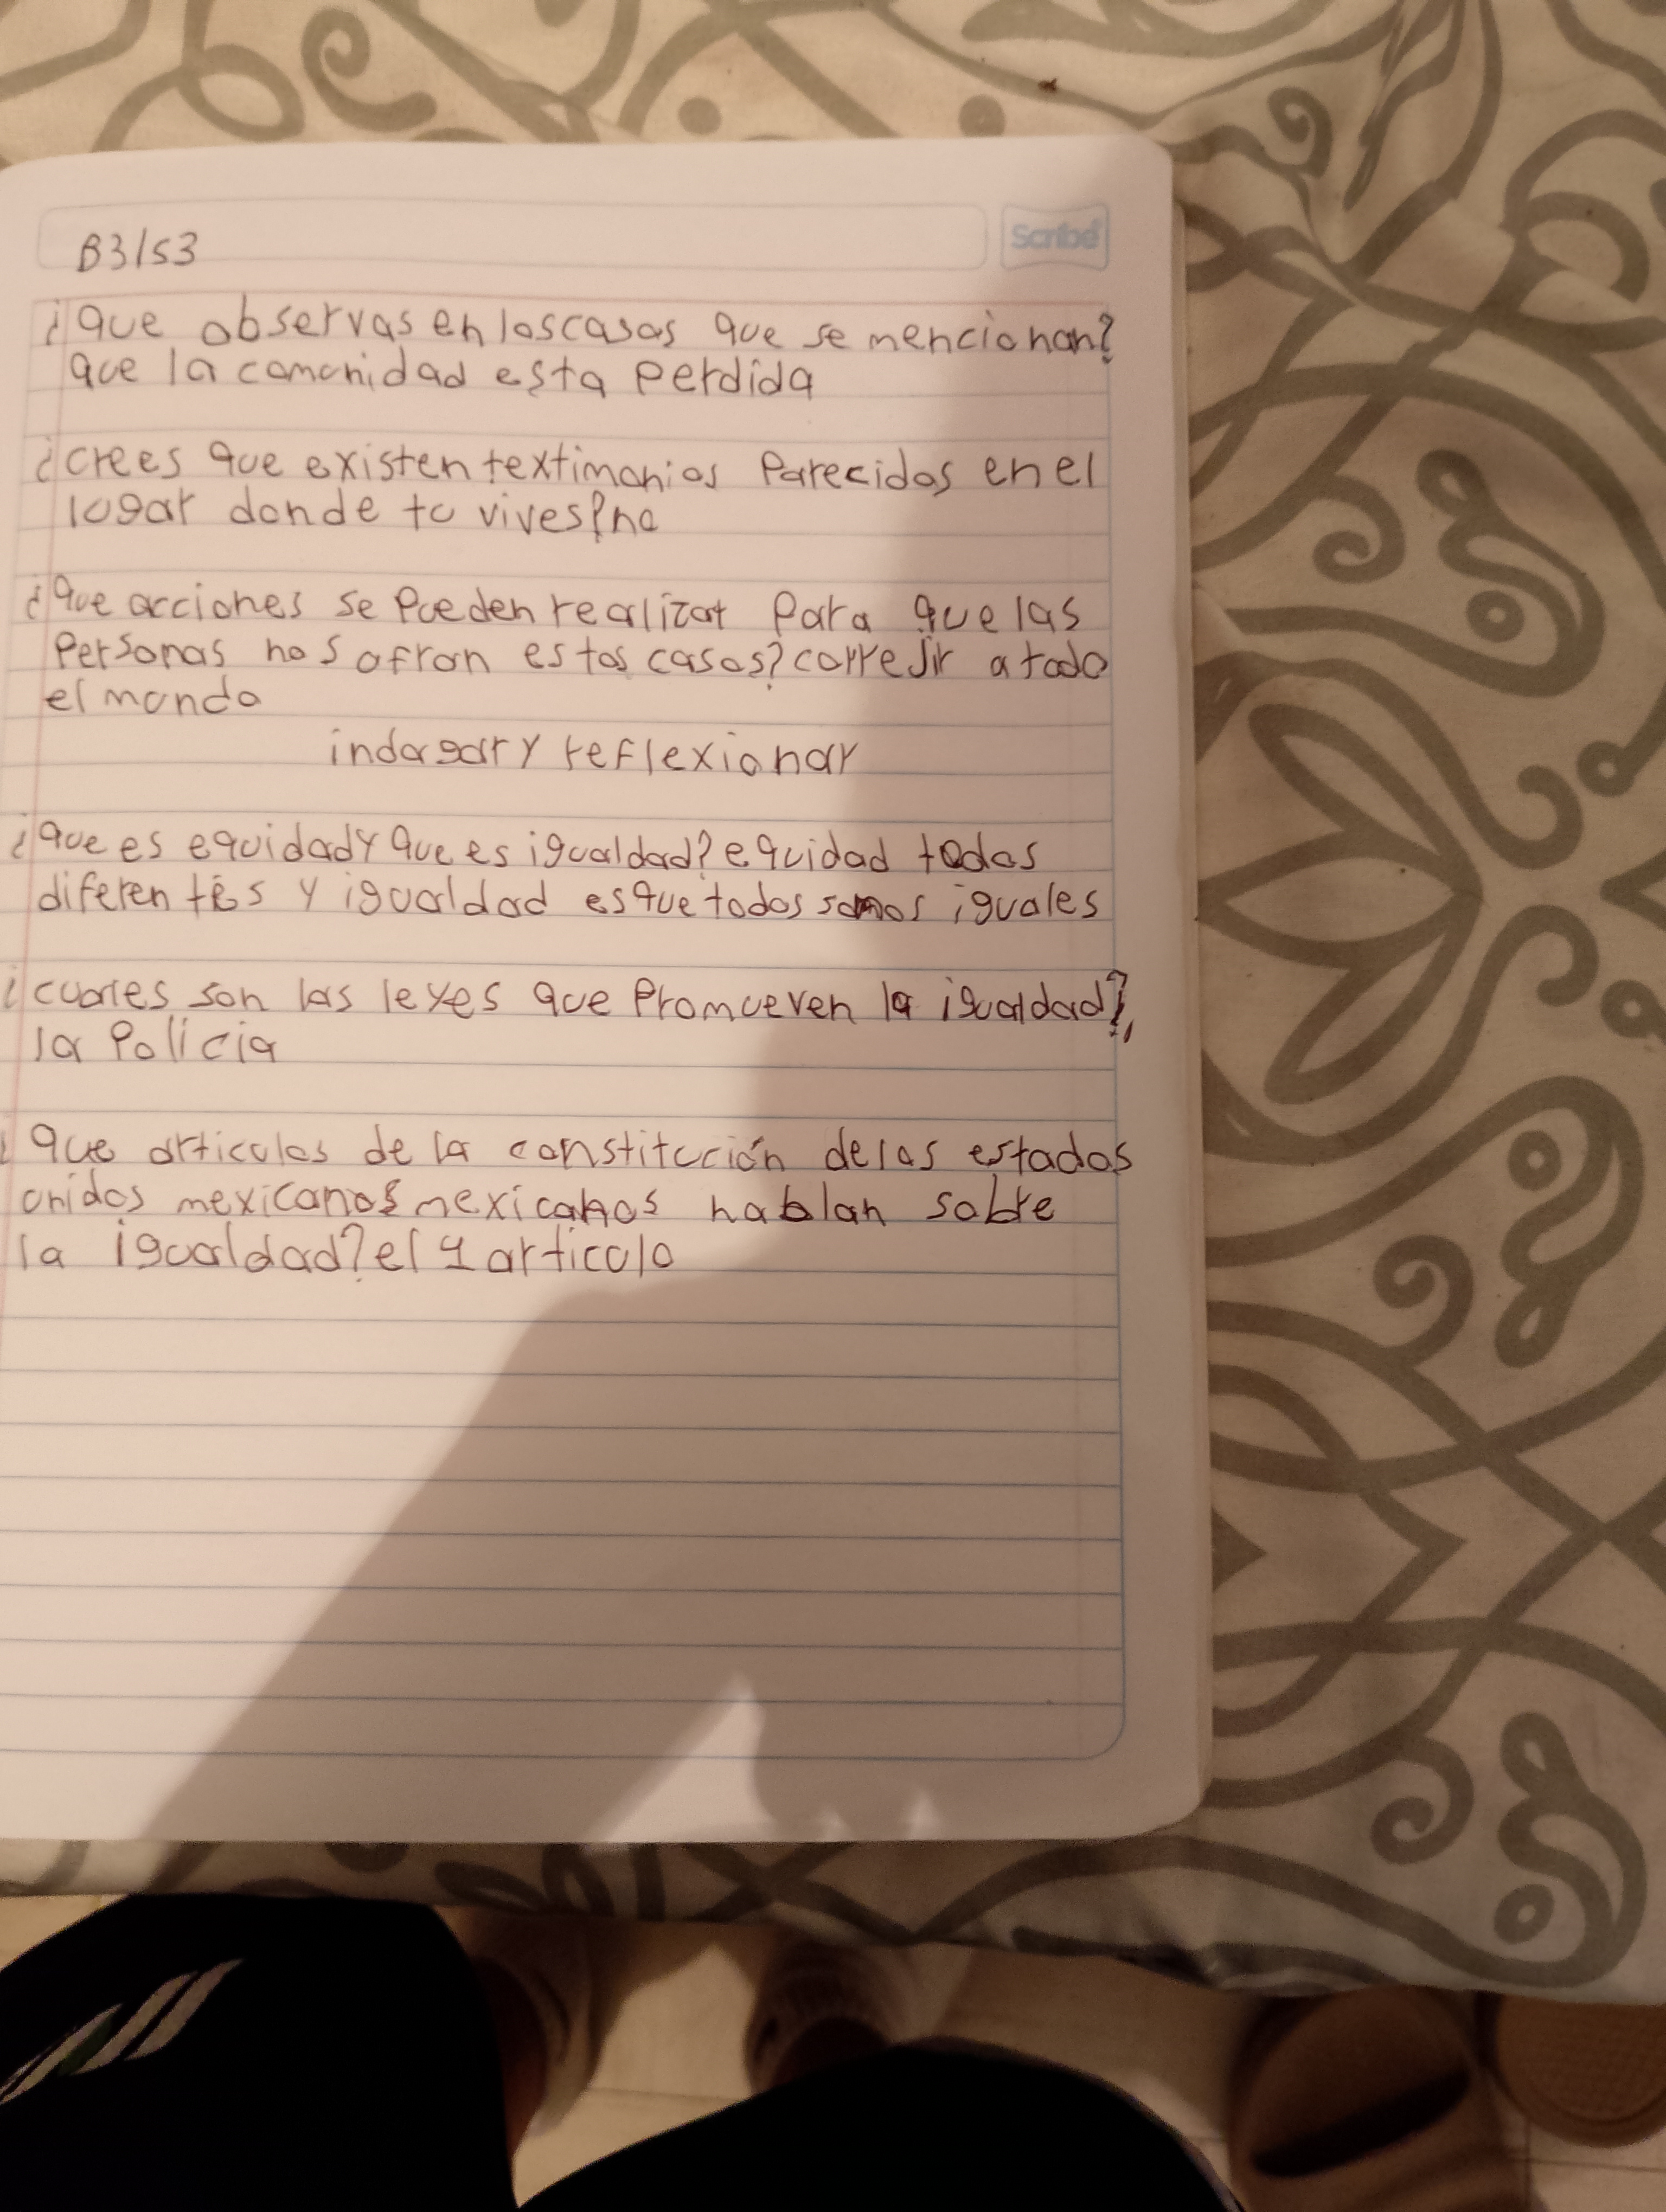 B3/S3
Scribe
¿que observas en los casos que se mencionan?
que la comunidad esta perdida
¿crees que existen textimonios parecidos en el
lugar donde tu vives?no
¿que acciones se pueden realizar para que las
personas no sofran estos casos? correjir a todo
el mundo
indagar y reflexionar
¿que es equidad y que es igualdad? equidad todos
diferentes y igualdad es que todos somos iguales
¿cuales son las leyes que promueven la igualdad?
la policia
¿que articulos de la constitución de los estados
unidos mexicanos mexicanos hablan sobre
la igualdad? el 1 articulo